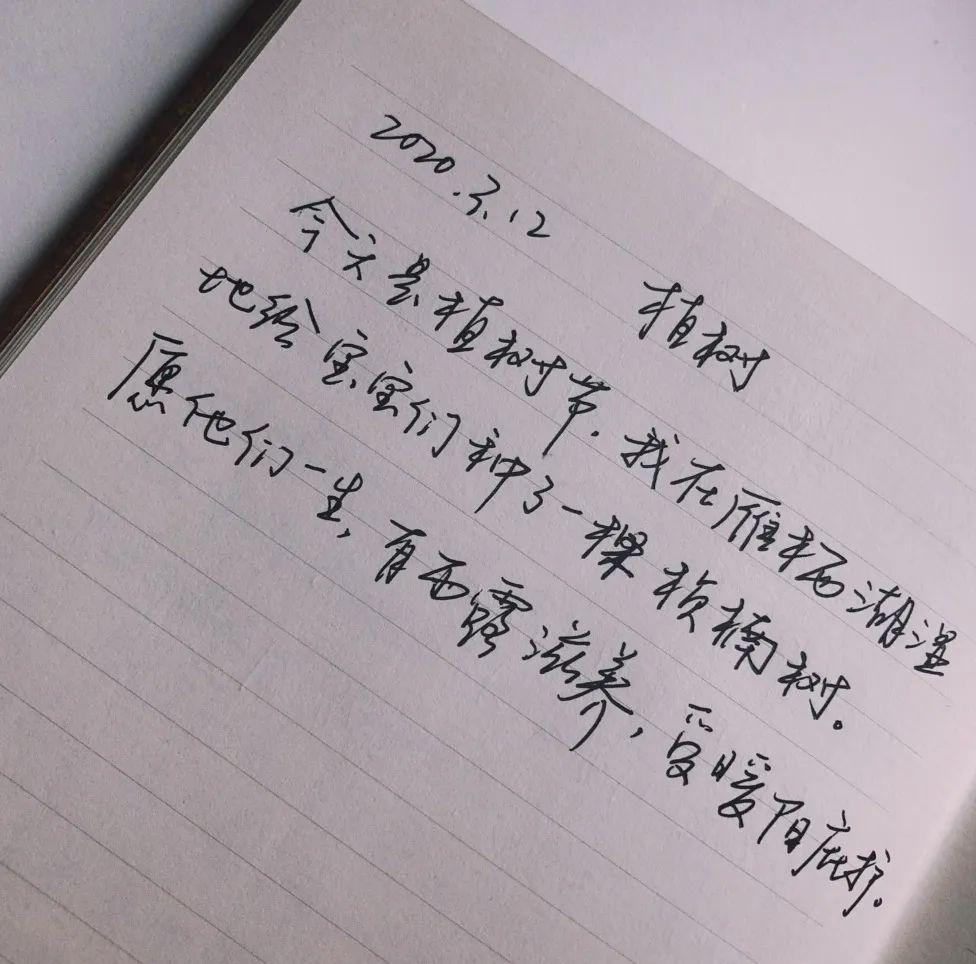 2020.3.12
植树
今天是植树节.我在雁栖湖湿
地给宝宝们种了一棵桢楠树。
愿他们一生,有雨露滋养,受暖阳庇护。